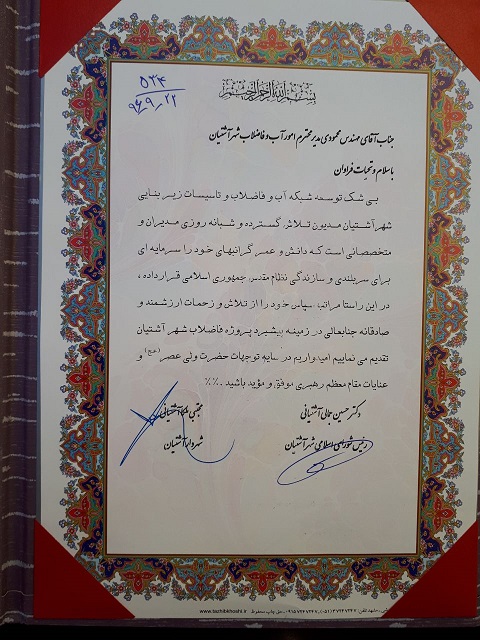 ۵۲۴
۹۶،۹،۲۲
بسم الله الرحمن الرحیم
جناب آقای مهندس محمودی مدیر محترم امور آب و فاضلاب شهر آشتیان
با سلام و تحیات فراوان
بی شک توسعه شبکه آب و فاضلاب و تاسیسات زیر بنایی
شهر آشتیان مدیون تلاش گسترده و شبانه روزی مدیران و
متخصصانی است که دانش و عمر گرانبهای خود را سرمایه ای
برای سربلندی و سازندگی نظام مقدس جمهوری اسلامی قرار داده ،
در این راستا مراتب سپاس خود را از تلاش و زحمات ارزشمند و
صادقانه جنابعالی در زمینه پیشبرد پروژه فاضلاب شهر آشتیان
تقدیم می نماییم امیدواریم در سایه توجهات حضرت ولی عصر (عج) و
عنایات مقام معظم رهبری موفق و مؤید باشید .٪٪
دکتر حسین جمالی آشتیانی
مجتبی آشتیانی
رئیس شورای اسلامی شهر آشتیان
شهردار آشتیان
www.tazhibkhoshi.ir